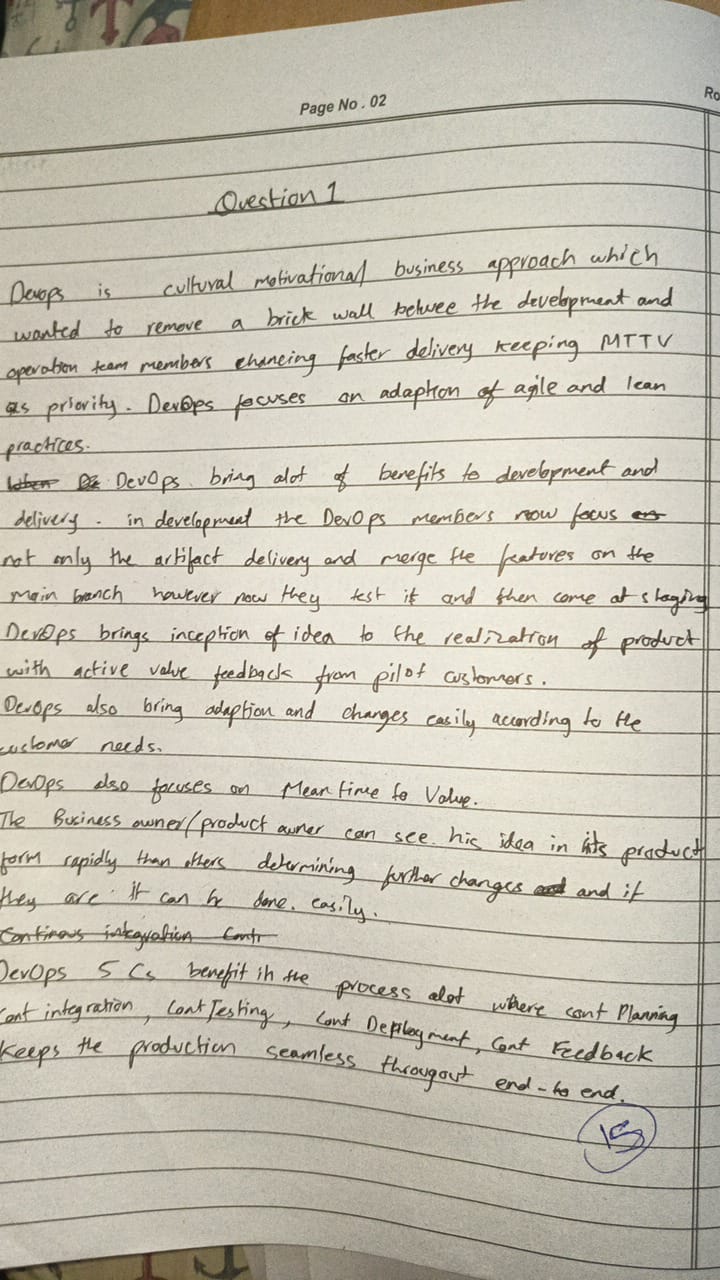 Page No. 02
Ro
Question 1
Devops is cultural motivational business approach which
wanted to remove a brick wall betwee the development and
operation team members enhancing faster delivery keeping MTTV
as priority. DevOps focuses on adaption of agile and lean
practices.
DevOps bring alot of benefits to development and
delivery. in development the DevOps members now focus
not only the artifact delivery and merge the features on the
main branch however now they test it and then come at staging
DevOps brings inception of idea to the realization of product
with active value feedback from pilot customers.
DevOps also bring adaption and changes easily according to the
customer needs.
DevOps also focuses on Mean time to Value.
The Business owner/product owner can see his idea in its product
form rapidly than others determining further changes and if
they are it can be done. easily.
Continous integration Conti
DevOps 5 Cs benefit in the process alot where cont Planning
Cont integration, Cont Testing, Cont Deployment, Cont Feedback
Keeps the production seamless througout end-to end.
15